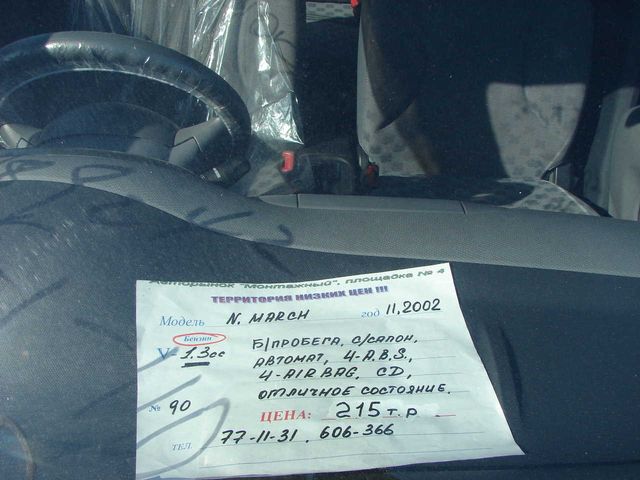 Авторынок "Монтажный", площадка № 4
ТЕРРИТОРИЯ НИЗКИХ ЦЕН !!!
Модель N. MARCH год 11,2002
Бензин
V- 1.3 сс Б/ПРОБЕГА, С/САЛОН,
АВТОМАТ, 4-A.B.S.,
4-AIRBAG, CD,
ОТЛИЧНОЕ СОСТОЯНИЕ.
№ 90 ЦЕНА: 215 т.р
ТЕЛ. 77-11-31, 606-366